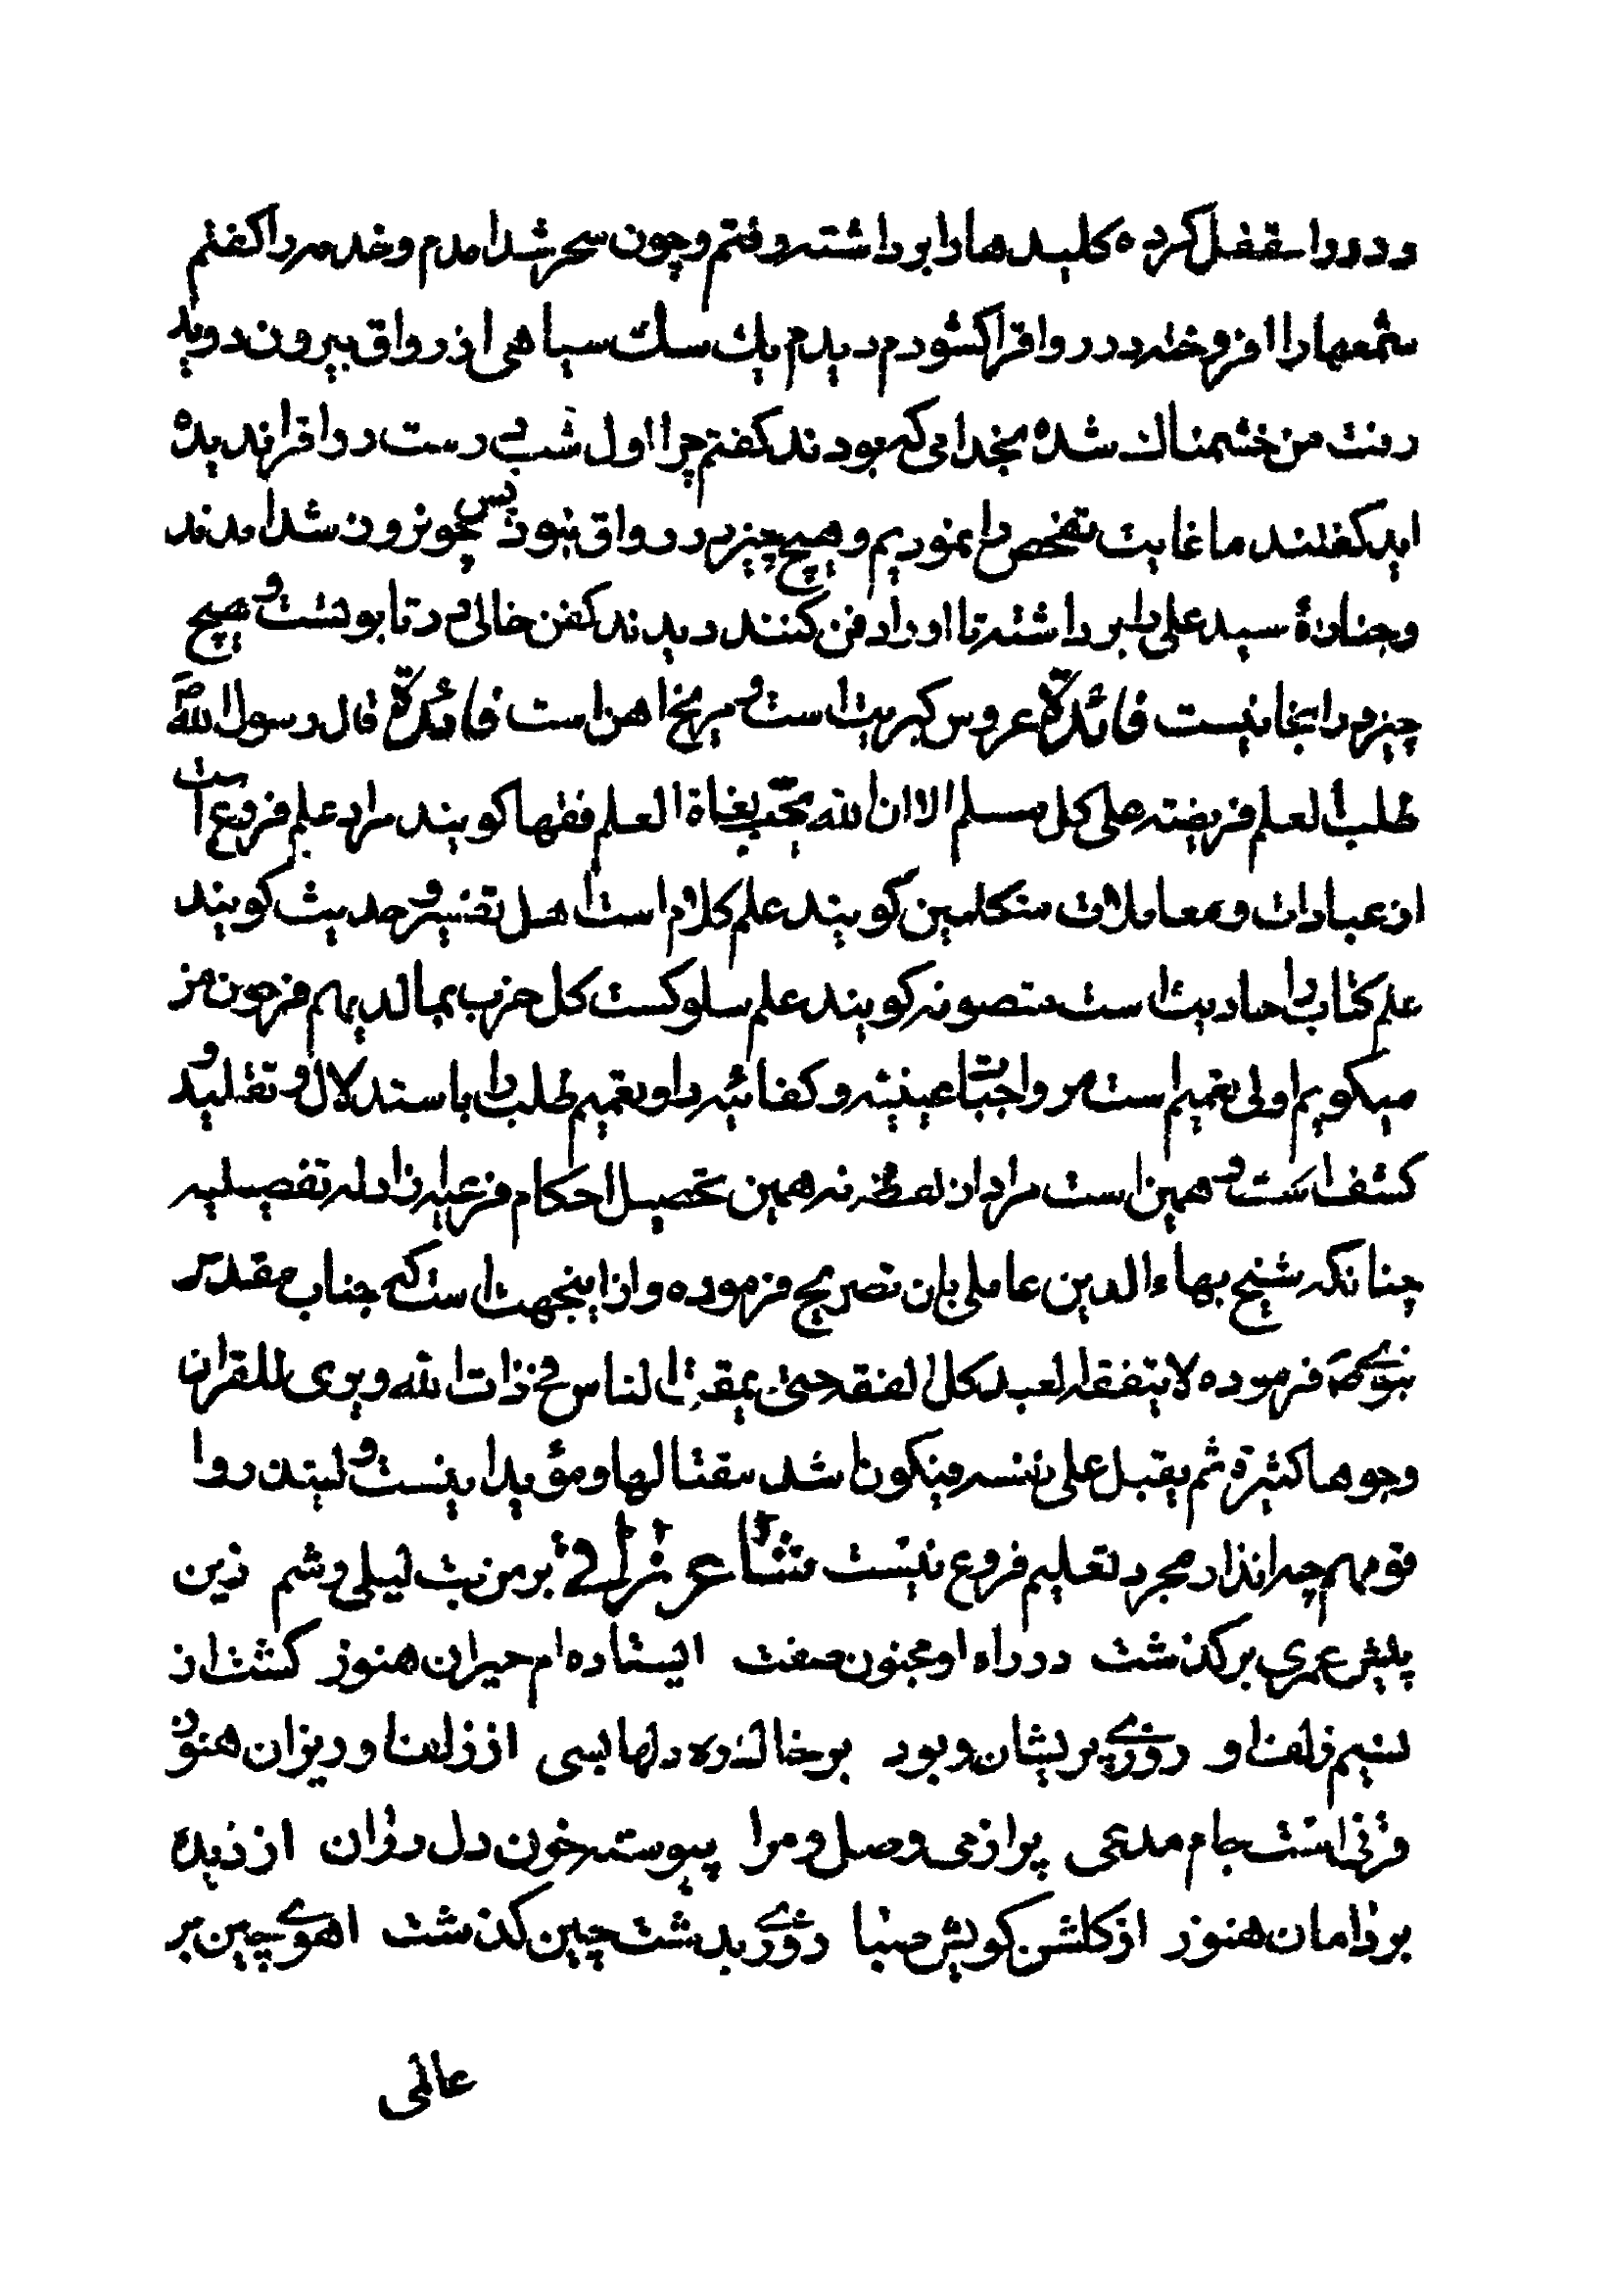 و در را مقفل کرده کلیدها را برداشته رفتم و چون سحر شد امدم و خدمه را کفتم
شمعها را افروخته در رواق را کشودم دیدم یك سك سیاهی از رواق بیرون دوید
رفت من خشمناك شده بخدامی که بودند کفتم چرا اول شب درست رواق را ندیده
اید کفتند ما غایت تفحص را نمودیم و هیچ چیز در رواق نبود پس چو نروز شد امدند
و جنازهٔ سید علی را برداشته تا او را دفن کنند دیدند کفن خالی در تابوتست و هیچ
چیز در اینجا نیست فائدة عروس کبریت است و مریخ اهن است فائدة قال رسول الله ص
طلب العلم فریضته علی کل مسلم الا ان الله یحب بغاة العلم فقها کویند مراد علم فروع است
از عبادات و معاملات متکلمین کویند علم کلام است اهل تفسیر و حدیث کویند
علم کتاب و احادیث است متصوفه کویند علم سلوکست کل حزب بما لدیهم فرحون من
میکویم اولی تعمیم است مر واجبات عینیه و کفائیه را و تعمیم طلب را باستدلال و تقلید و
کشف است و همین است مراد از لفظ فقه نه همین تحصیل احکام فرعیه از ادله تفصیلیه
چنانکه شیخ بهاء الدین عاملی بان تصریح فرموده و از اینجهت است که جناب مقدس
نبوی ص فرموده لا یتفقه العبد کل الفقه حتی یمقت الناس فی ذات الله و یری للقران
وجوها کثیرة ثم یقبل علی نفسه فیکون اشد مقتا لها و مؤید اینست و لینذروا
قومهم چه انذار مجرد تعلیم فروع نیست شاعر غزالی بر من بت لیلی وشم زین
پیش عمری برکذشت در راه او مجنون صفت ایستاده ام حیران هنوز کشت از
نسیم زلف او روزی پریشان و بود بر خاك ره دلها بسی از زلف او ریزان هنوز
قرنی است جام مدعی پر از می وصل و مرا پیوسته خون دل روان از دیده
بر دامان هنوز از کلشن کویش صبا روزی بدشت چین کذشت اهوی چین بر
عالمی